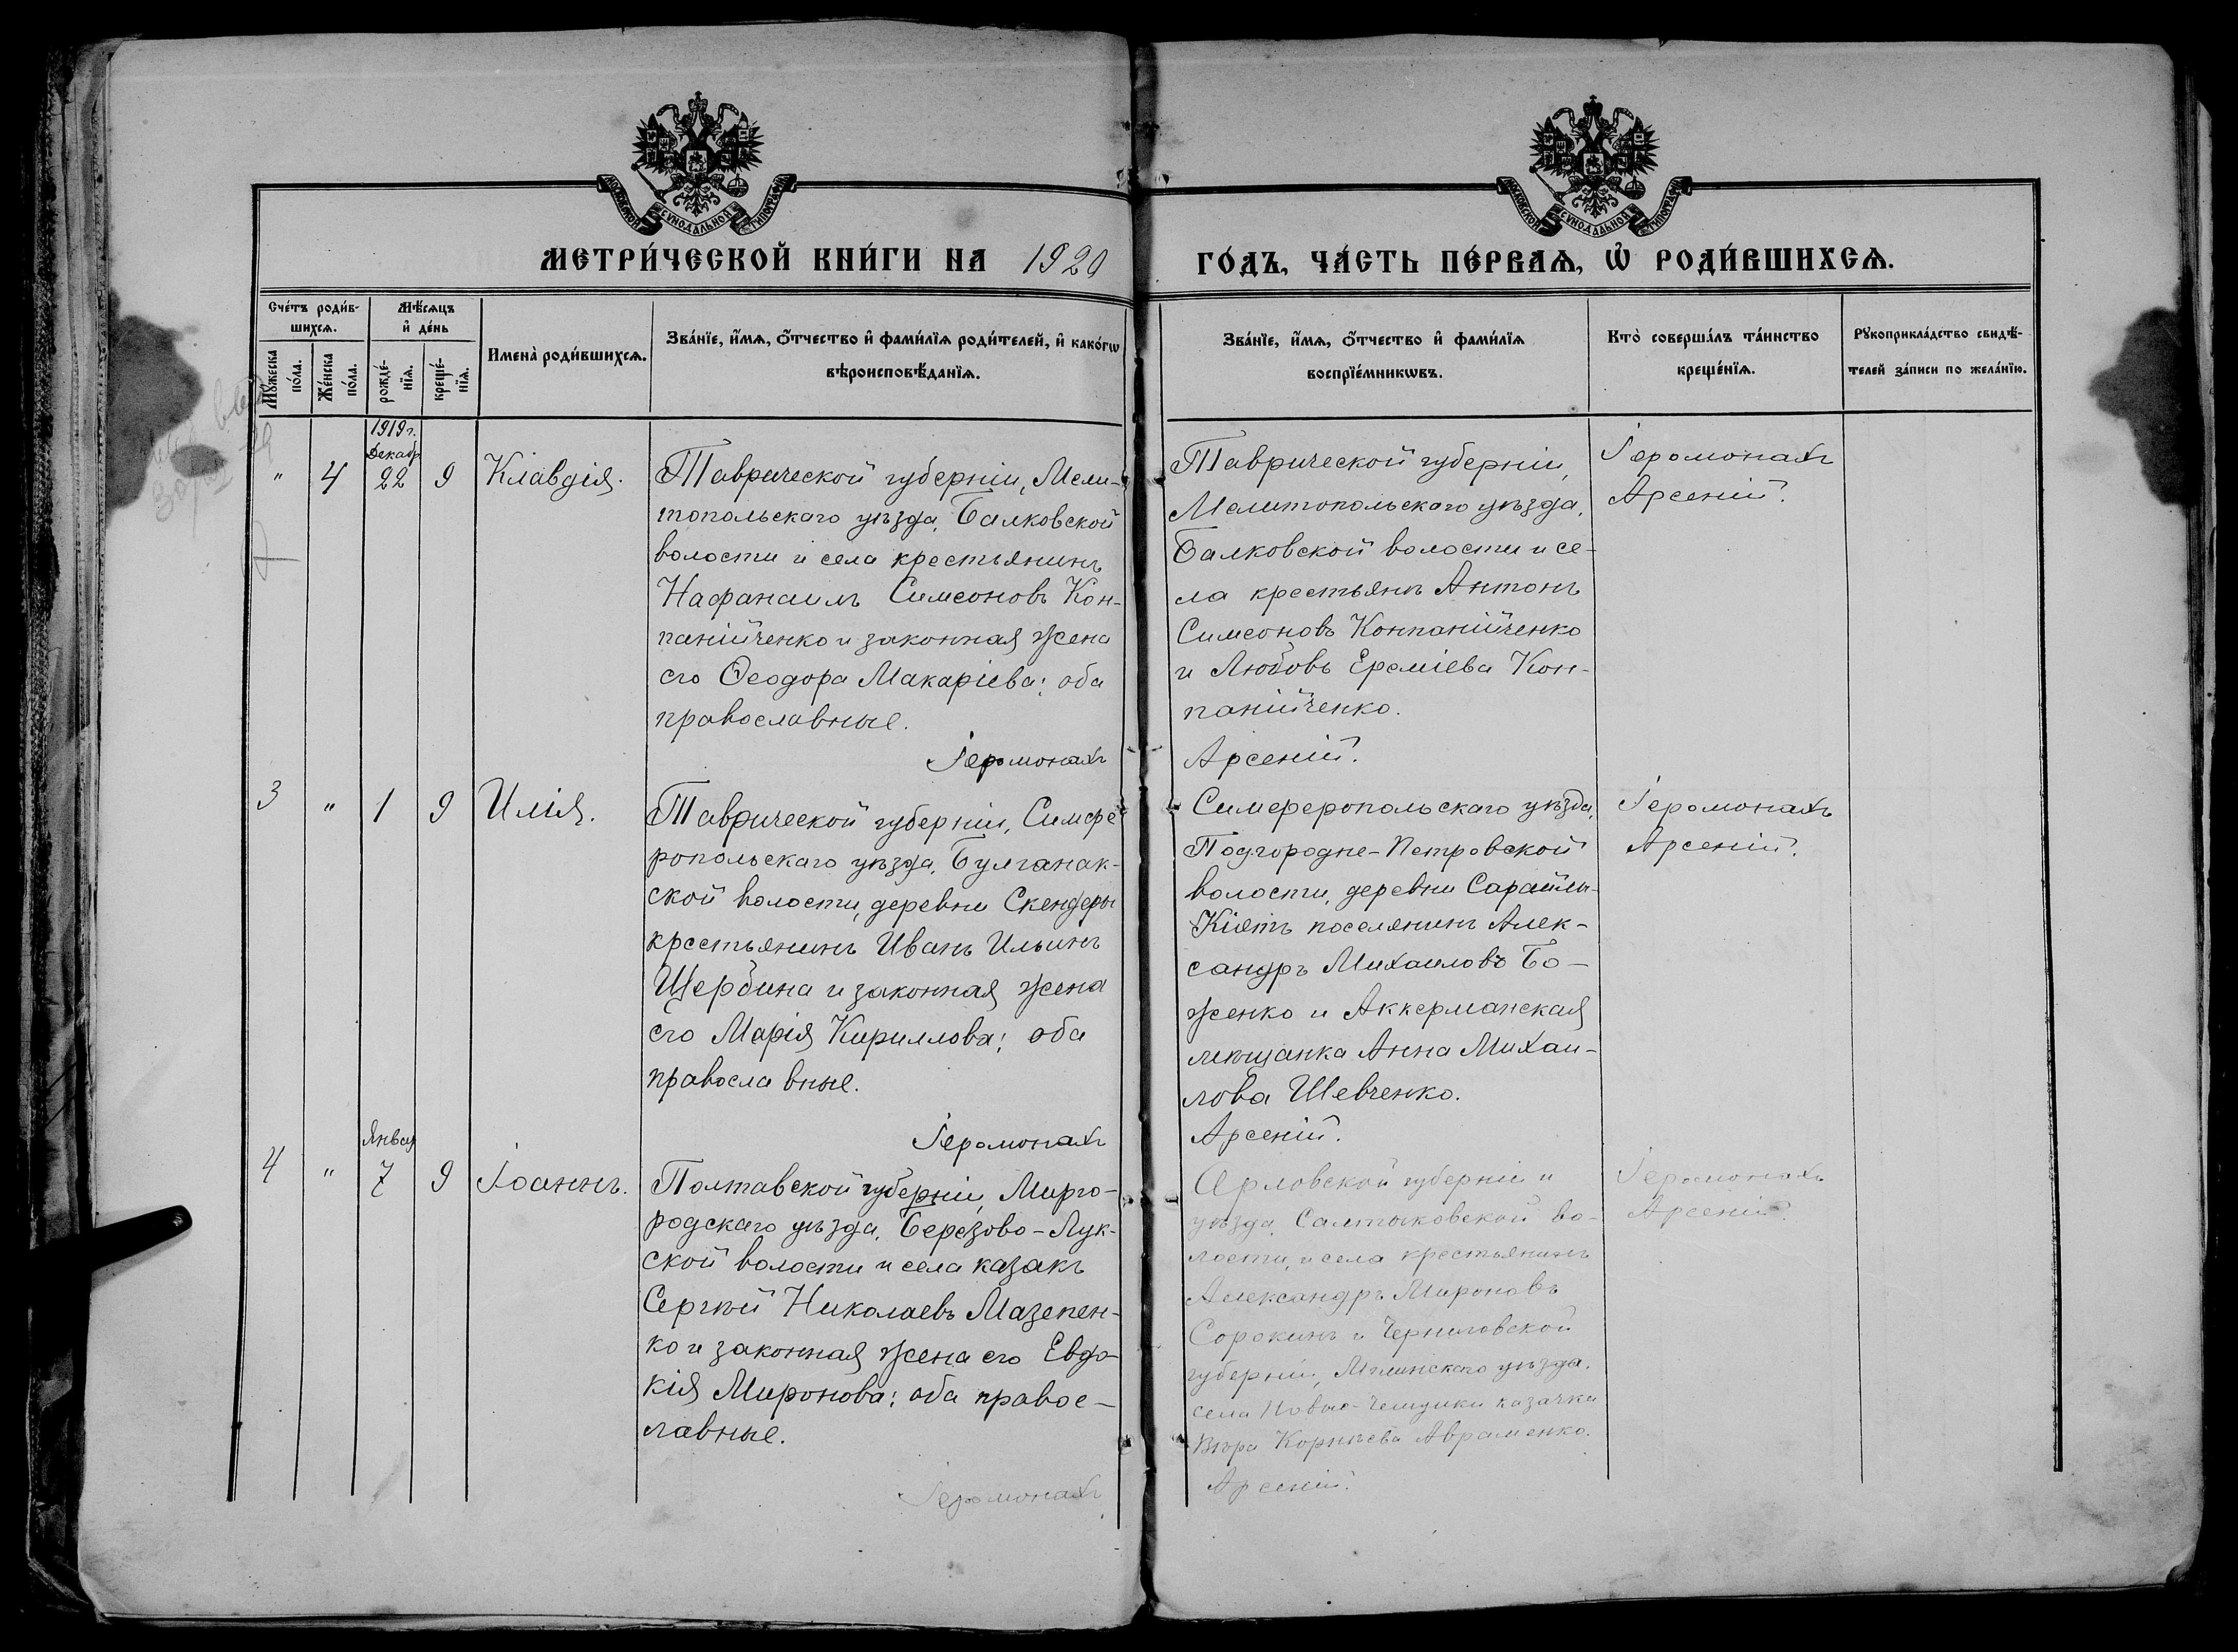 МЕТРИ́ЧЕСКОЙ КНИ́ГИ НА 1920
ГО́ДЪ, ЧА́СТЬ ПЕ́РВАѦ, Ѡ РОДИ́ВШИХСѦ.
МОСКОВСКОЙ СѴНОДАЛЬНОЙ ТИПОГРАФІИ
МОСКОВСКОЙ СѴНОДАЛЬНОЙ ТИПОГРАФІИ
Сче́тъ роди́в-
шихсѧ.
Мꙋ́жеска по́ла.
Же́нска по́ла.
Мѣ́сѧцъ
и҆ де́нь
рожде́-нїѧ.
креще́-нїѧ.
Имена̀ роди́вшихсѧ.
Зва́нїе, и҆́мѧ, ѻ҆́тчество и҆ фами́лїѧ роди́телей, и҆ како́гѡ
вѣроисповѣ́данїѧ.
Зва́нїе, и҆́мѧ, ѻ҆́тчество и҆ фами́лїѧ
воспрїе́мникѡвъ.
Кто̀ соверша́лъ та́инство
креще́нїѧ.
Рꙋкоприкла́дство свидѣ́-
телей за́писи по жела́нїю.
1919 г.
Декабр
" 4 22 9 Клавдія.
Таврической губерніи, Мели-
топольскаго уѣзда, Балковской
волости и села крестьянинъ
Нафанаилъ Симеоновъ Кон-
панійченко и законная жена
его Ѳеодора Макаріева; оба
православные.
Іеромонахъ
Таврической губерніи,
Мелитопольскаго уѣзда,
Балковской волости и се-
ла крестьянъ Антонъ
Симеоновъ Конпанійченко
и Любовь Ереміева Кон-
панійченко.
Арсеній.
Іеромонахъ
Арсеній.
3 " 1 9 Илія.
Таврической губерніи, Симфе-
ропольскаго уѣзда, Булганак-
ской волости, деревни Скендеры
крестьянинъ Иванъ Ильинъ
Щербина и законная жена
его Марія Кириллова; оба
православные.
Іеромонахъ
Симферопольскаго уѣзда,
Подгородне-Петровской
волости, деревни Сарайлы-
Кіятъ поселянинъ Алек-
сандръ Михаиловъ Бо-
женко и Аккерманская
мѣщанка Анна Михаи-
лова Шевченко.
Арсеній.
Іеромонахъ
Арсеній.
Январ
4 " 7 9 Іоаннъ.
Полтавской губерніи, Мирго-
родскаго уѣзда, Березово-Лук-
ской волости и села казакъ
Сергѣй Николаевъ Мазепен-
ко и законная жена его Евдо-
кія Миронова; оба правос-
лавные.
Іеромонахъ
Орловской губерніи и
уѣзда, Салтыковской во-
лости, и села крестьянинъ
Александръ Мироновъ
Сорокинъ и Черниговской
губерніи, Мглинскаго уѣзда,
села казачка
Вѣра Корнѣева Авраменко.
Арсеній.
Іеромонахъ
Арсеній.